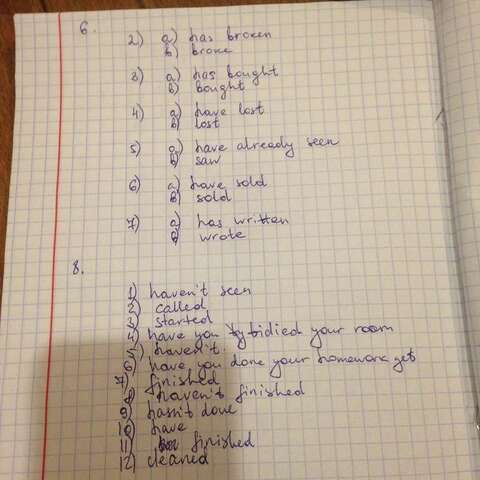 6.
2) a) has broken
b) broke
3) a) has bought
b) bought
4) a) have lost
b) lost
5) a) have already seen
b) saw
6) a) have sold
b) sold
7) a) has written
b) wrote
8.
1) haven't seen
2) called
3) started
4) have you tidied your room
5) haven't
6) have you done your homework yet
7) finished
8 haven't finished
9) hasn't done
10) have
11) finished
12) cleaned